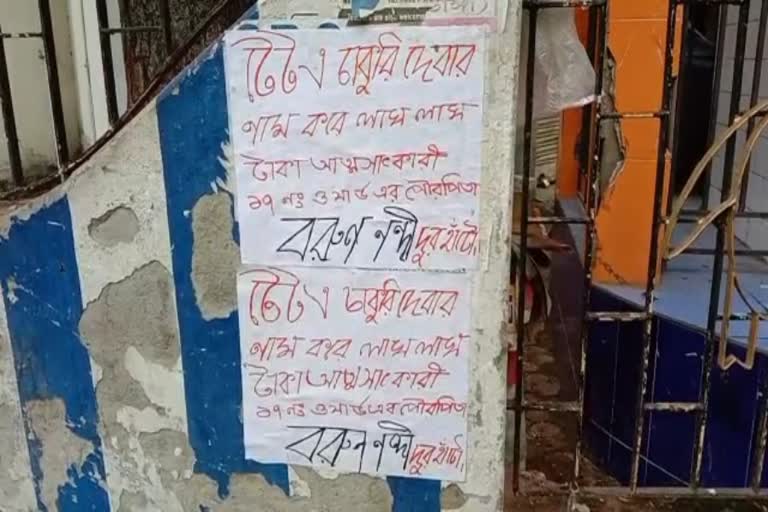 টেট এ চাকুরি দেবার
নাম করে লাখ লাখ
টাকা আত্মসাৎকারী
১৭ নং ওয়ার্ড এর পৌরপিতা
বরুণ নন্দী দূর হাঁটো
টেট এ চাকুরি দেবার
নাম করে লাখ লাখ
টাকা আত্মসাৎকারী
১৭ নং ওয়ার্ড এর পৌরপিতা
বরুণ নন্দী দূর হাঁটো